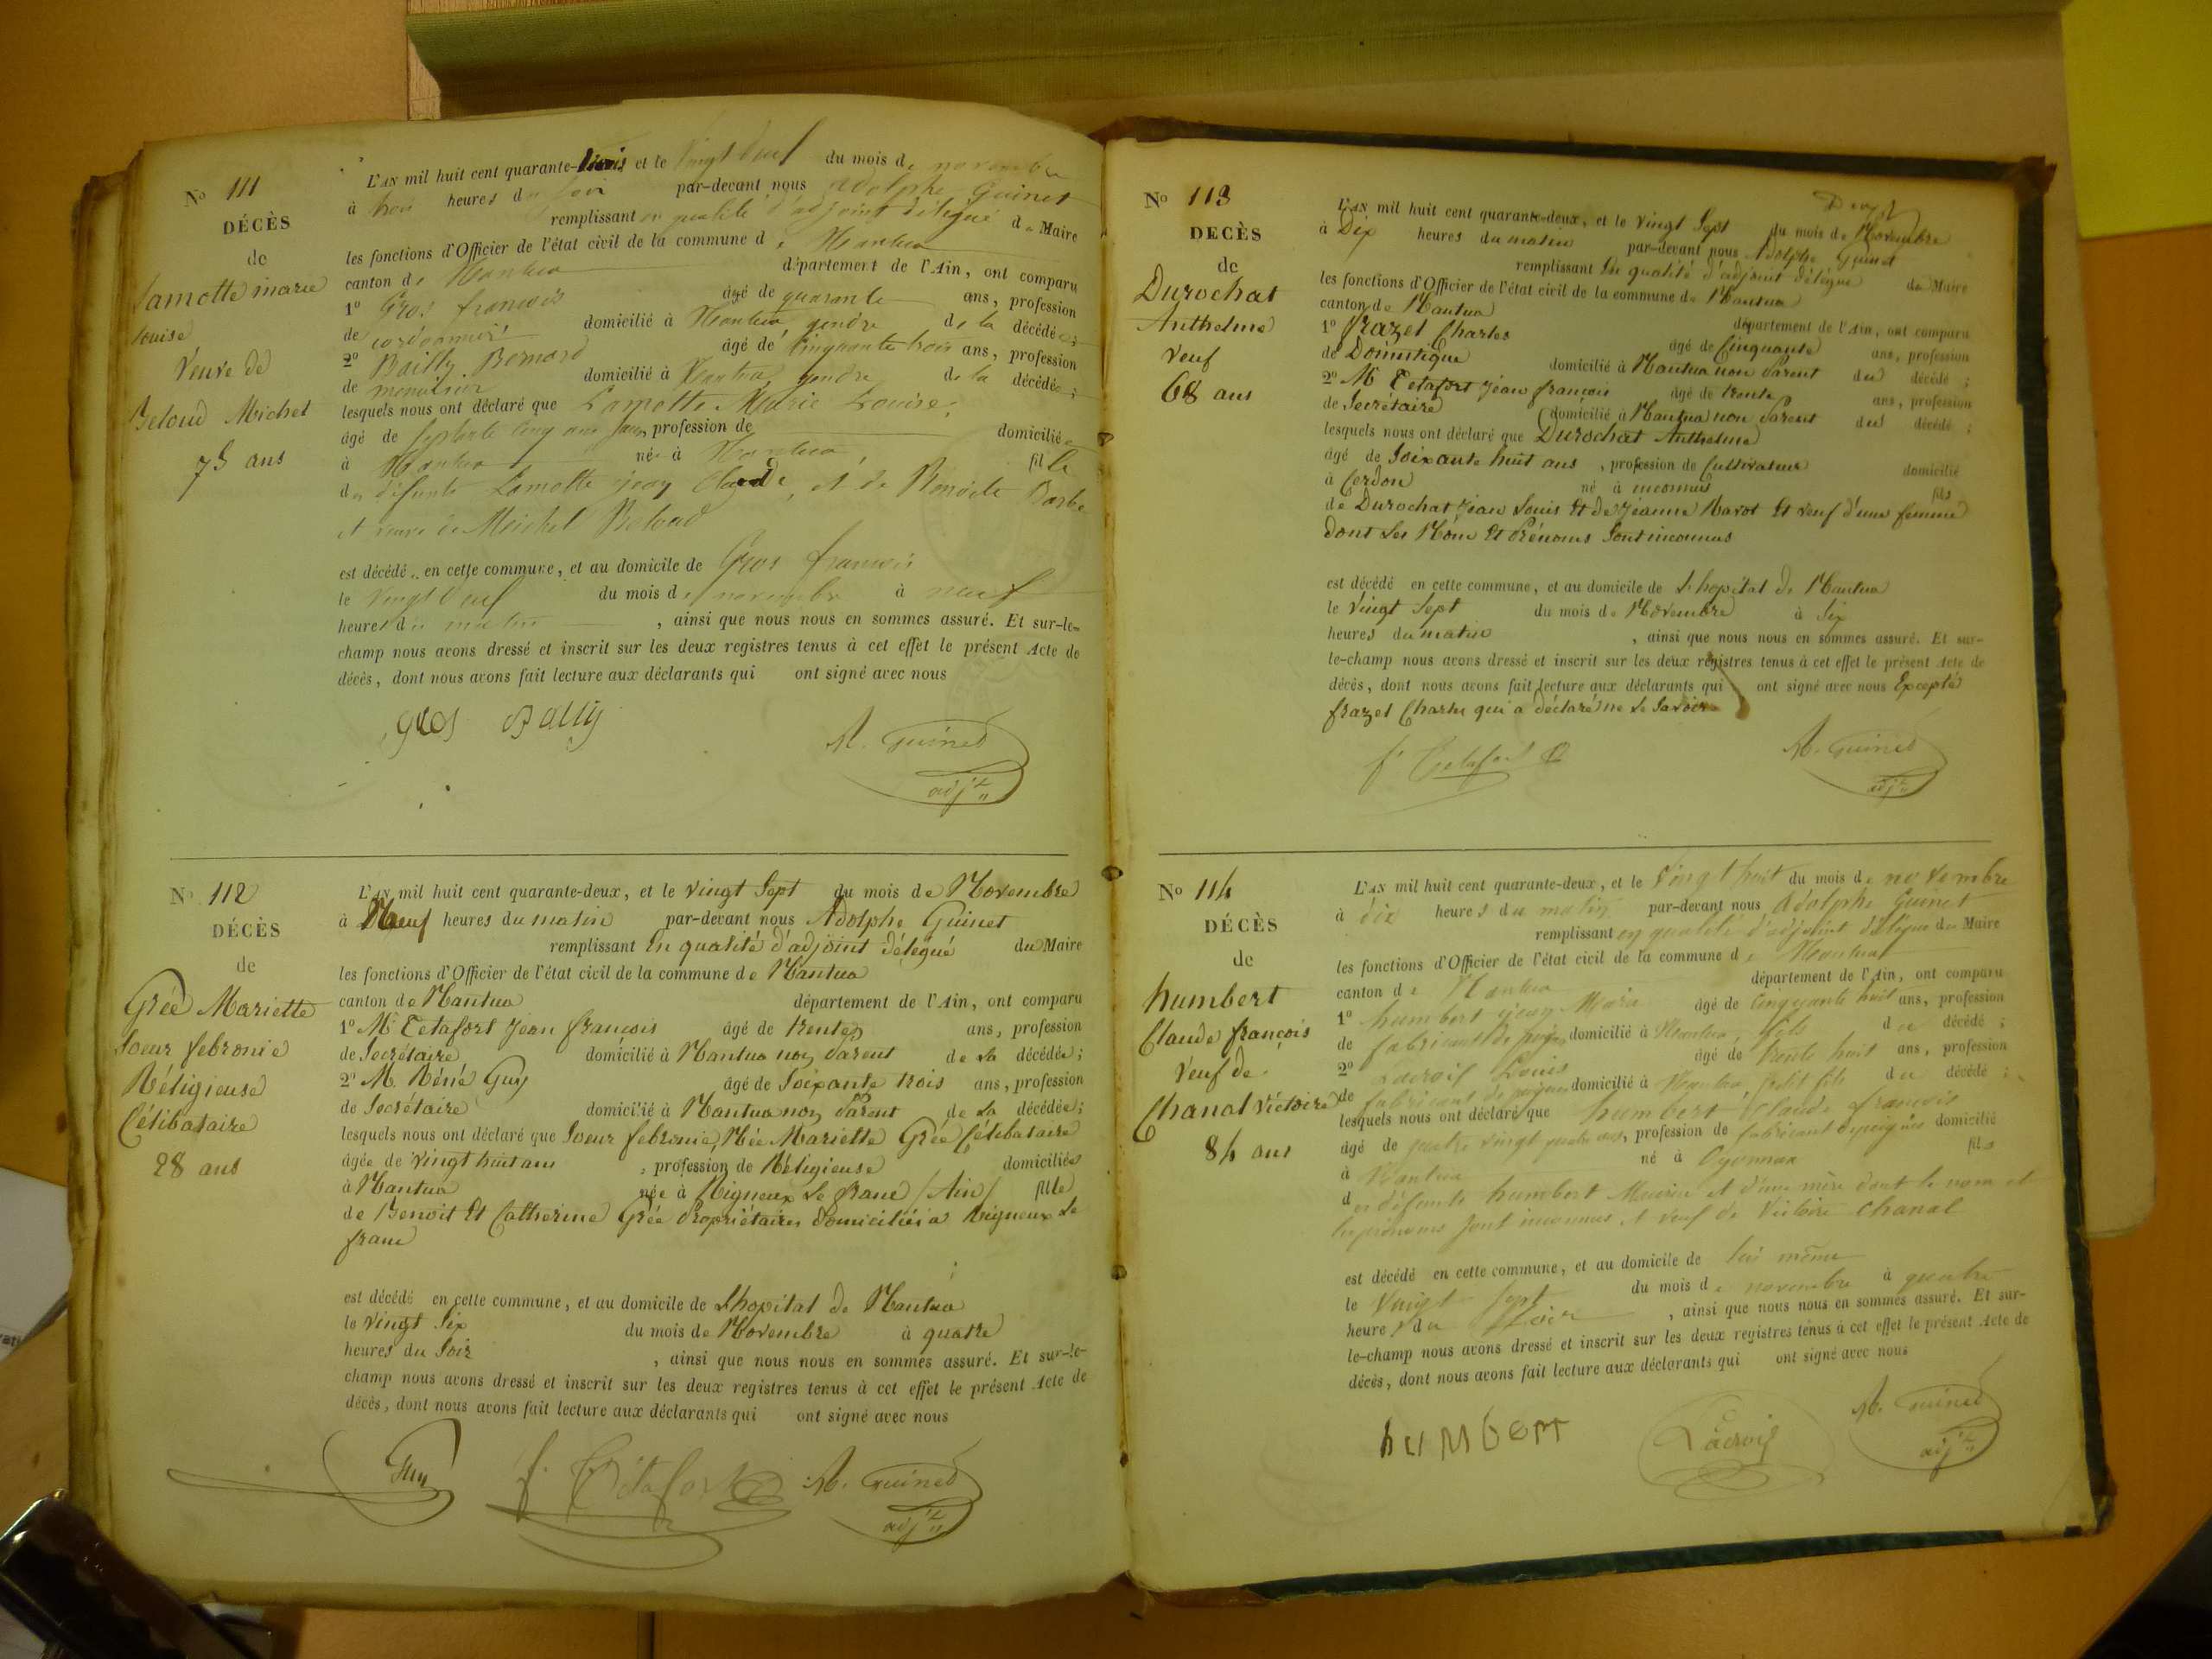 N° 111
DÉCÈS
de
Lamotte marie
louise
Veuve de
Beloud Michel
75 ans
L'AN mil huit cent quarante- et le Vingt deux du mois de novembre
à trois heures du soir par-devant nous Adolphe Guinet
remplissant en qualité d'adjoint délégué du Maire
les fonctions d'Officier de l'état civil de la commune de Nantua
canton de Nantua département de l'Ain, ont comparu
1° Gros françois âgé de quarante ans, profession
de cordonnier domicilié à Nantua, gendre de la décédée;
2° Bailly Bernard âgé de cinquante trois ans, profession
de menuisier domicilié à Nantua gendre de la décédée;
lesquels nous ont déclaré que Lamotte Marie Louise,
âgé de septante cinq ans sans profession de domiciliée
à Nantua née à Nantua, fille
des défunts Lamotte jean Claude, et de Benoite Barbe
et veuve de Michel Beloud
est décédé en cette commune, et au domicile de Gros françois
le Vingt deux du mois de novembre à neuf
heures du matin, ainsi que nous nous en sommes assuré. Et sur-le-
champ nous avons dressé et inscrit sur les deux registres tenus à cet effet le présent Acte de
décès, dont nous avons fait lecture aux déclarants qui ont signé avec nous
gros Bally A. Guinet
adjt
N° 112
DÉCÈS
de
Grée Mariette
Soeur febronie
Réligieuse
Célibataire
28 ans
L'AN mil huit cent quarante-deux, et le vingt Sept du mois de Novembre
à Neuf heures du matin par-devant nous Adolphe Guinet
remplissant En qualité d'adjoint délégué du Maire
les fonctions d'Officier de l'état civil de la commune de Nantua
canton de Nantua département de l'Ain, ont comparu
1° Mr Tetafort Jean françois âgé de trente ans, profession
de Secrétaire domicilié à Nantua non parent de la décédée;
2° M. Réné Guy âgé de Soixante trois ans, profession
de Secrétaire domicilié à Nantua non parent de la décédée;
lesquels nous ont déclaré que Soeur febronie, Née Mariette Grée Célibataire
âgée de vingt huit ans, profession de Réligieuse domiciliée
à Nantua née à Rigneux Le franc (Ain) fille
de Benoit Et Catherine Grée Propriétaires domiciliés à Rigneux Le
franc
est décédé en cette commune, et au domicile de L'hopital de Nantua
le vingt Six du mois de Novembre à quatre
heures du Soir, ainsi que nous nous en sommes assuré. Et sur-le-
champ nous avons dressé et inscrit sur les deux registres tenus à cet effet le présent Acte de
décès, dont nous avons fait lecture aux déclarants qui ont signé avec nous
Guy f. Tétafort A. Guinet
adjt
N° 113
DÉCÈS
de
Durochat
Anthelme
Veuf
68 ans
L'AN mil huit cent quarante-deux, et le vingt Sept du mois de Novembre
à Dix heures du matin par-devant nous Adolphe Guinet
remplissant En qualité d'adjoint délégué du Maire
les fonctions d'Officier de l'état civil de la commune de Nantua
canton de Nantua département de l'Ain, ont comparu
1° frazel Charles âgé de Cinquante ans, profession
de Domestique domicilié à Nantua non parent du décédé;
2° M Tetafort Jean françois âgé de trente ans, profession
de Secrétaire domicilié à Nantua non parent du décédé;
lesquels nous ont déclaré que Durochat Anthelme
âgé de Soixante huit ans, profession de Cultivateur domicilié
à Cerdon né à inconnus fils
de Durochat Jean Louis Et de Jeanne Navot Et veuf d'une femme
dont Les Nom Et Prénoms Sont inconnus
est décédé en cette commune, et au domicile de L'hopital de Nantua
le vingt Sept du mois de Novembre à Six
heures du matin, ainsi que nous nous en sommes assuré. Et sur-
le-champ nous avons dressé et inscrit sur les deux registres tenus à cet effet le présent Acte de
décès, dont nous avons fait lecture aux déclarants qui ont signé avec nous Excepté
frazel Charles qui a déclaré ne Le Savoir
f. Tetafort A. Guinet
adjt
N° 114
DÉCÈS
de
humbert
Claude françois
Veuf de
Chanal Victoire
84 ans
L'AN mil huit cent quarante-deux, et le Vingt huit du mois de novembre
à dix heures du matin par-devant nous Adolphe Guinet
remplissant en qualité d'adjoint délégué du Maire
les fonctions d'Officier de l'état civil de la commune de Nantua
canton de Nantua département de l'Ain, ont comparu
1° humbert jean Marie âgé de cinquante huit ans, profession
de fabricant de peignes domicilié à Nantua, fils du décédé;
2° Lacroix Louis âgé de trente huit ans, profession
de fabricant de peignes domicilié à Nantua petit fils du décédé;
lesquels nous ont déclaré que humbert Claude françois
âgé de quatre vingt quatre ans, profession de fabricant de peignes domicilié
à Nantua né à Oyonnax fils
des défunts humbert Maurice et d'une mère dont le nom et
les prénoms sont inconnus, et veuf de Victoire Chanal
est décédé en cette commune, et au domicile de lui même
le Vingt Sept du mois de novembre à quatre
heures du Soir, ainsi que nous nous en sommes assuré. Et sur-
le-champ nous avons dressé et inscrit sur les deux registres tenus à cet effet le présent Acte de
décès, dont nous avons fait lecture aux déclarants qui ont signé avec nous
humbert Lacroix A. Guinet
adjt